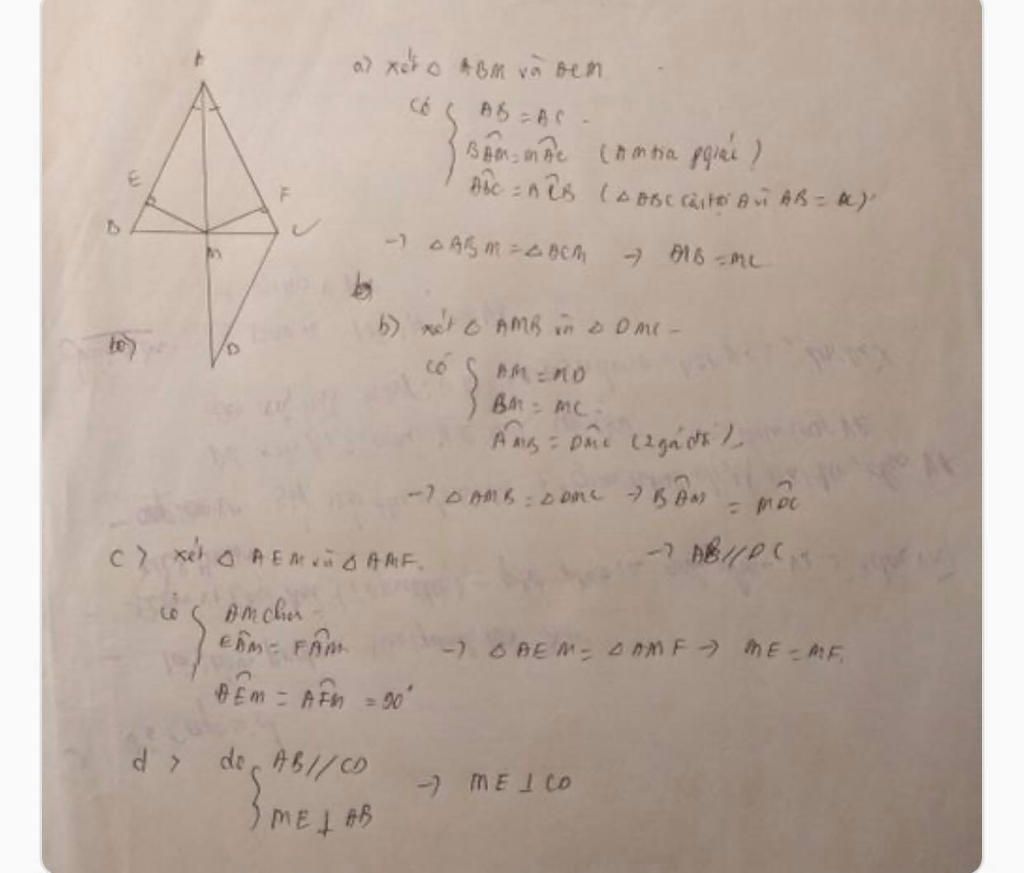 A
E
F
B
C
M
D
a) xét △ ABM và ACM
có { AB = AC
BÂM = MÂC (AM tia pgiác)
ABC = ACB (△ ABC cân tại A vì AB = AC)
→ △ ABM = △ ACM → MB = MC
b) xét △ AMB và △ DMC
có { AM = MD
BM = MC
AMB = DMC (2 góc đđ)
→ △ AMB = △ DMC → BÂM = MDC
→ AB // DC
c) xét △ AEM và △ AMF.
có { AM chu
EÂM = FÂM
→ △ AEM = △ AMF → ME = MF.
AEM = AFM = 90°
d) do { AB // CD
ME ⊥ AB
→ ME ⊥ CD